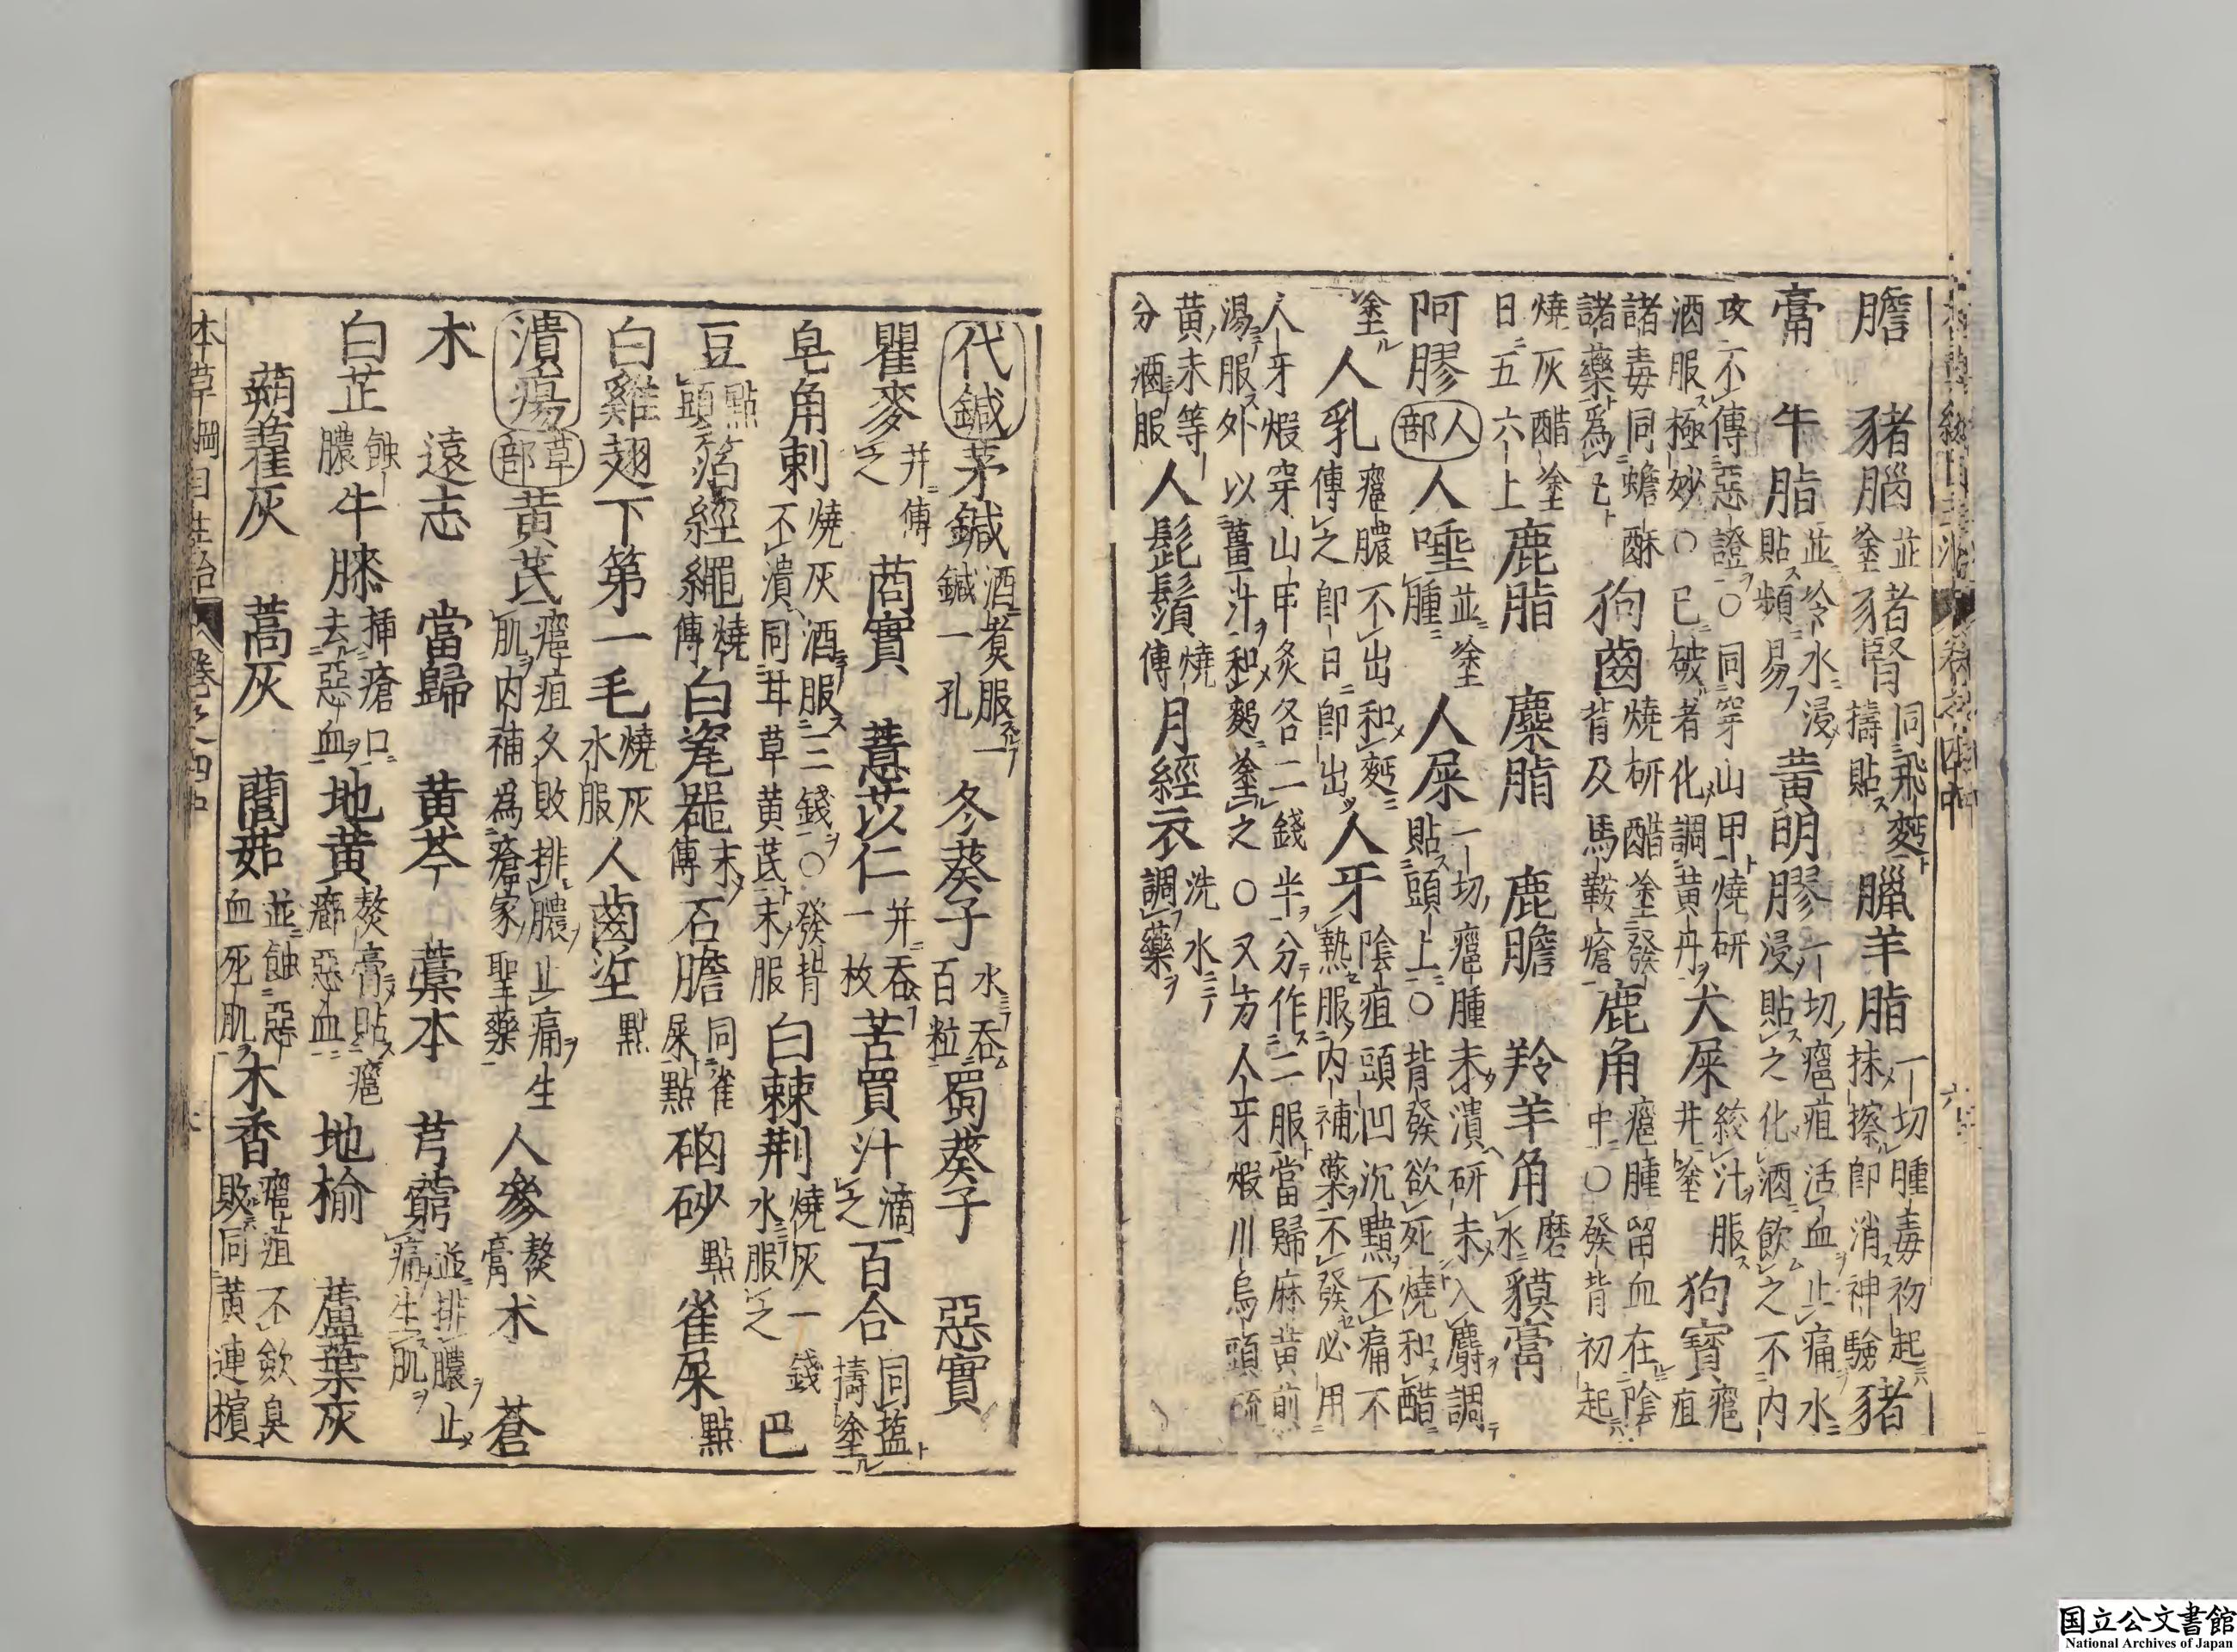 膽 豬腦 並塗 豬腎 同飛麪擣貼 臘羊脂 一切腫毒初起抹擦即消神驗 豬
膏 牛脂 並冷水浸貼頻易 黄明膠 一切癰疽活血止痛水浸貼之化酒飲之不内
攻不傳惡證○同穿山甲燒研酒服極妙○已破者化調黄丹 犬屎 絞汁服并塗 狗寶 癰疽
諸毒同蟾酥諸藥為乇 狗齒 燒研醋塗發背及馬鞍瘡 鹿角 癰腫留血在陰中○發背初起
燒灰醋塗日五六上 鹿脂 麋脂 鹿膽 羚羊角 磨水 貘膏
阿膠 人部 人唾 並塗腫 人屎 一切癰腫未潰研末入麝調貼頭上○背發欲死燒和醋
塗 人乳 癰膿不出和麪傅之即日即出 人牙 陰疽頭凹沉黯不痛不熱服内補藥不發必用
人牙煆穿山甲炙各二錢半分作二服當歸麻黄煎湯服外以薑汁和麪塗之○又方人牙煆川烏頭硫
黄末等分酒服 人髭鬚 燒傅 月經衣 洗水調藥
代鍼 茅鍼 酒煮服一鍼一孔 冬葵子 水吞百粒 蜀葵子 惡實
瞿麥 并傅之 茼實 薏苡仁 并吞一枚 苦買汁 滴之 百合 同塩擣塗
皂角刺 燒灰酒服三錢○發背不潰同甘草黄芪末服 白棘荆 燒灰一錢水服之 巴
豆 點頭 箔經繩 燒傅 白瓷器 末傅 石膽 同雀屎點 硇砂 點 雀屎 點
白雞翅下第一毛 燒灰水服 人齒垽 點
潰瘍 草部 黄芪 癰疽久敗排膿止痛生肌内補為瘡家聖藥 人參 熬膏 朮 蒼
木 遠志 當歸 黄芩 藁本 芎藭 並排膿止痛生肌
白芷 蝕膿 牛膝 挿瘡口去惡血 地黄 熬膏貼癰癤惡血 地榆 蘆葉灰
蒴藋灰 蒿灰 藺茹 並蝕惡血死肌 木香 癰疽不斂臭敗同黄連檳
本草綱目主治 卷之四中
国立公文書館
National Archives of Japan